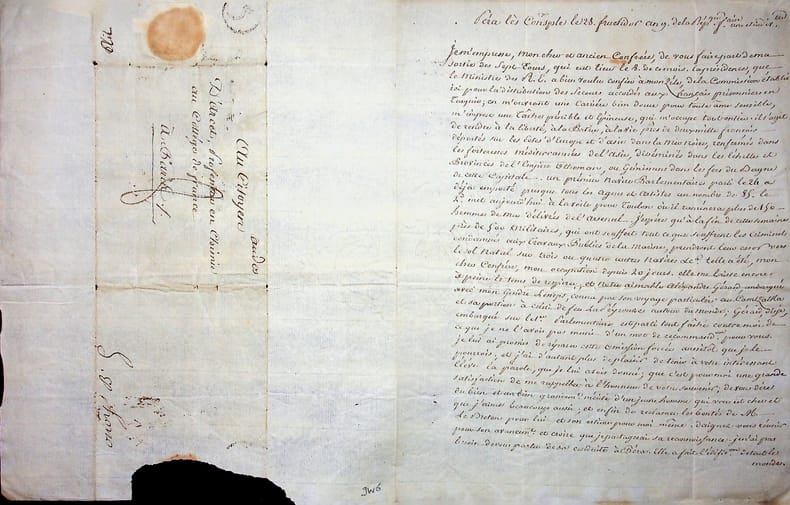 Péra lès Consple le 28. fructidor an 9. de la Rép. fse
Je m'empresse, mon cher et ancien Confrère, de vous faire part de ma
sortie des Sept Tours, qui eut lieu le 8. de ce mois. La présidence, que
le Ministre des R. E. a bien voulu confier à mon zèle, de la Commission établie
ici pour la distribution des Secours accordés aux français prisonniers en
Turquie; en m'ouvrant une Carrière bien douce pour toute âme sensible,
m'impose une tâche pénible et épineuse, qui m'occupe tout entier: il s'agit
de rendre à la liberté, à la Patrie, à la vie près de deux mille français
déportés sur les côtes d'Europe et d'asie dans la Mer noire, renfermés dans
les forteresses méditerrannées de l'asie, disséminés dans les échelles et
Provinces de l'Empire Ottoman, ou Gémissant dans les fers du Bagne
de cette Capitale. un prémier Navire Parlementaire parti le 24 a
déjà emporté presque tous les Agens et Artistes au nombre de 85. le
2d. met aujourd'hui à la voile pour Toulon où il ramènera plus de 150
hommes de mer délivrés de l'arsenal. J'espère qu'à la fin de cette semaine
près de 500 Militaires, qui ont souffert tout ce que souffrent les Criminels
condamnés aux travaux Publics de la Marine, prendront leur essor vers
le sol Natal sur trois ou quatre autres Navires &c. telle a été, mon
cher Confrère, mon occupation depuis 20 jours. elle me laisse encore
à peine le tems de respirer, et notre aimable Alexandre Gérard embarqué
avec mon Gendre Lesseps, connu par son voyage particulier au Camtzatka
et sa portion à celui de feu La Peyrouse autour du Monde; Gérard, dis-je,
embarqué sur le 1er. Parlementaire est parti tout fâché contre moi de
ce que je ne l'avois pas muni d'un mot de recommandn. pour vous.
je lui ai promis de réparer cette omission forcée aussitôt que je le
pourrois, et j'ai d'autant plus de plaisir de tenir à votre intéressant
élève la parole, que je lui avois donnée; que c'est pour moi une grande
satisfaction de me rappeller à l'honneur de votre souvenir, de vous dire
du bien et un bien grandemt. mérité d'un jeune homme, qui vous est cher et
que j'aime beaucoup aussi, et enfin de reclamer les bontés de M.
le Docteur pour lui et son estime pour moi même. daignez vous réunir
pour son avancemt. et croire que je partagerai sa reconnaissance. je n'ai pas
besoin de vous parler de sa conduite à Péra. Elle a fait l'édificn. de tout le
monde.
Au Citoyen
D'arcet, Professeur en Chimie
au Collège de france
à Paris
JW6